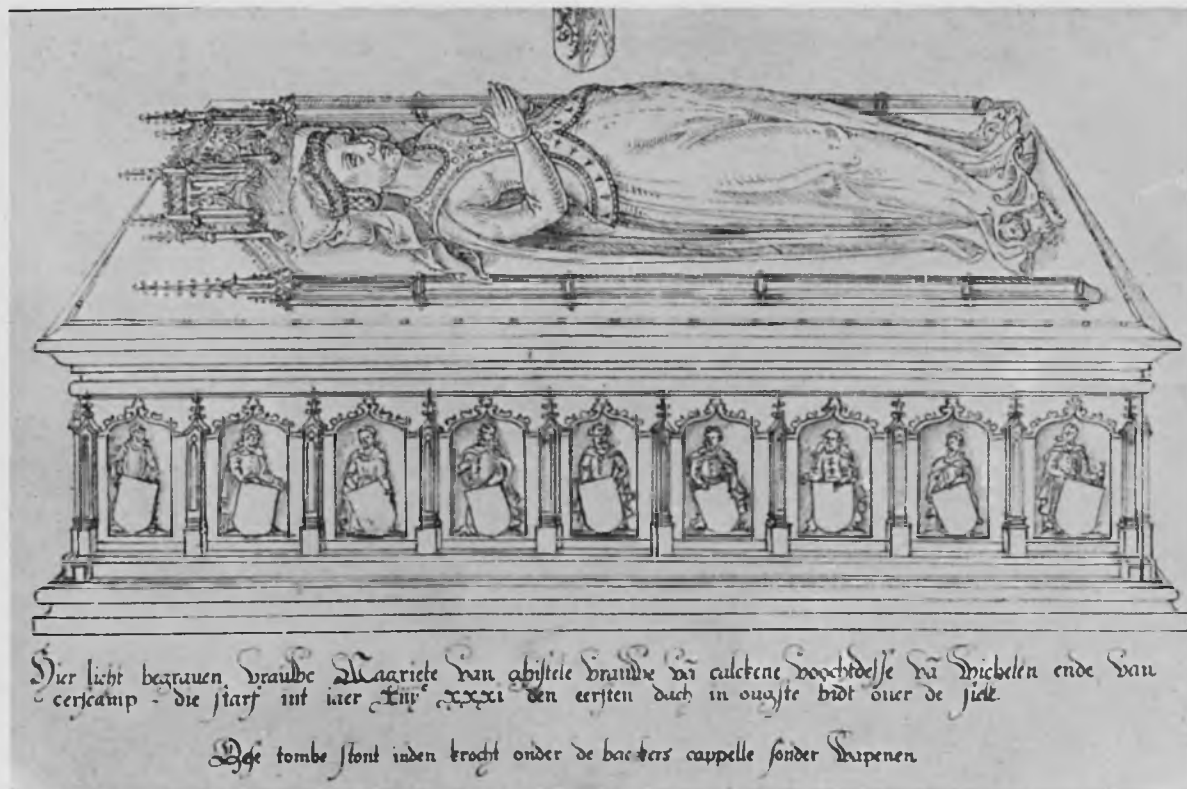 Hier licht begraven vrauwe Maagriete van ghistele vrauwe vā calckene voochtdesse vā wichelen ende van
cerscamp - die starf int iaer xiiijᶜ xxxi den eersten dach in ougste bidt over de siele.
Dese tombe stont inden krocht onder de backers cappelle sonder wapenen